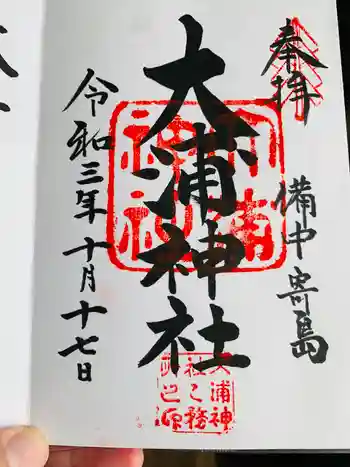 奉拝
備中寄島
大浦神社
令和三年十月十七日
大浦神
社之務